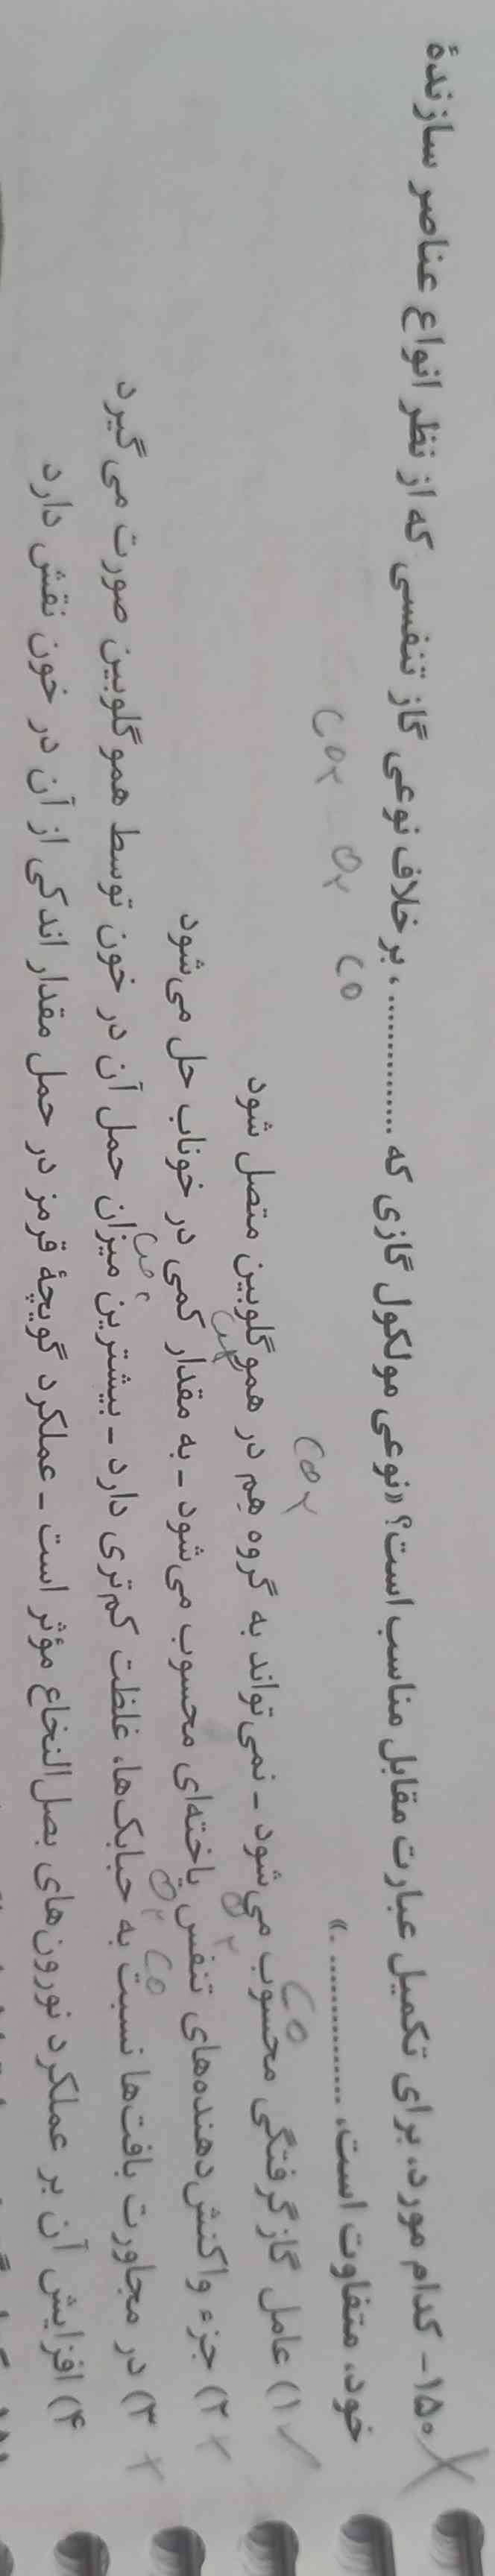 ۱۵۰- کدام مورد، برای تکمیل عبارت مقابل مناسب است؟ «نوعی مولکول گازی که ..............، برخلاف نوعی گاز تنفسی که از نظر انواع عناصر سازندهٔ
خود، متفاوت است، .............. .»
CO₂ O₂ CO
CO₂
۱) عامل گازگرفتگی محسوب می‌شود - نمی‌تواند به گروه هِم در هموگلوبین متصل شود
CO
۲) جزء واکنش‌دهنده‌های تنفس یاخته‌ای محسوب می‌شود - به مقدار کمی در خوناب حل می‌شود
O₂
۳) در مجاورت بافت‌ها نسبت به حبابک‌ها، غلظت کم‌تری دارد - بیشترین میزان حمل آن در خون توسط هموگلوبین صورت می‌گیرد
CO O₂
۴) افزایش آن بر عملکرد نورون‌های بصل‌النخاع مؤثر است - عملکرد گویچهٔ قرمز در حمل مقدار اندکی از آن در خون نقش دارد